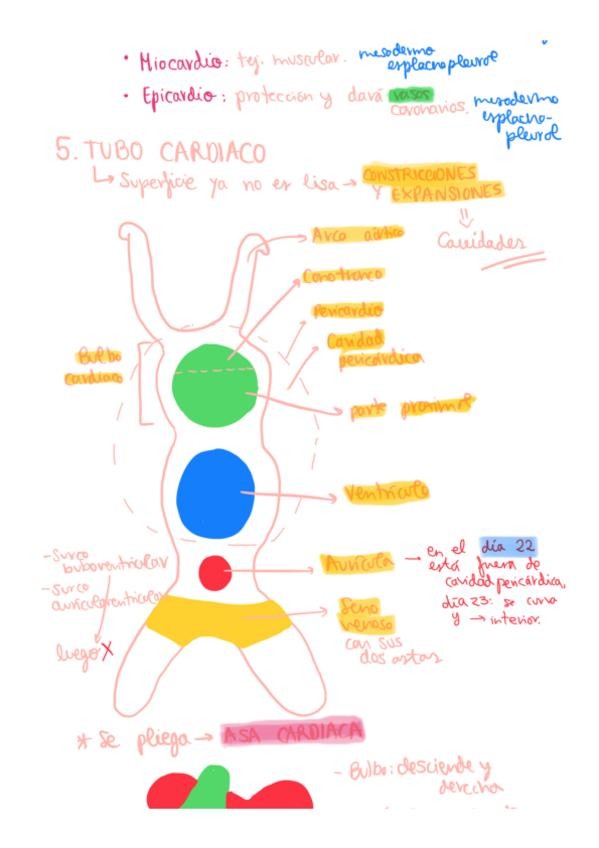 • Miocardio: tej. muscular. mesodermo
esplacnopleural
• Epicardio: protección y dará vasos
coronarios. mesodermo
esplacno-
pleural
5. TUBO CARDIACO
↳ Superficie ya no es lisa → CONSTRICCIONES
Y EXPANSIONES
Cavidades
Arco aórtico
Conotronco
Pericardio
Cavidad
pericárdica
Bulbo
cardiaco
parte proximal
Ventrículo
-Surco
bulboventricular
-Surco
auriculoventricular
luego X
Aurícula → en el día 22
está fuera de
cavidad pericárdica,
día 23: se curva
y → interior.
Seno
venoso
con sus
dos astas
* Se pliega → ASA CARDIACA
- Bulbo: desciende y
derecha